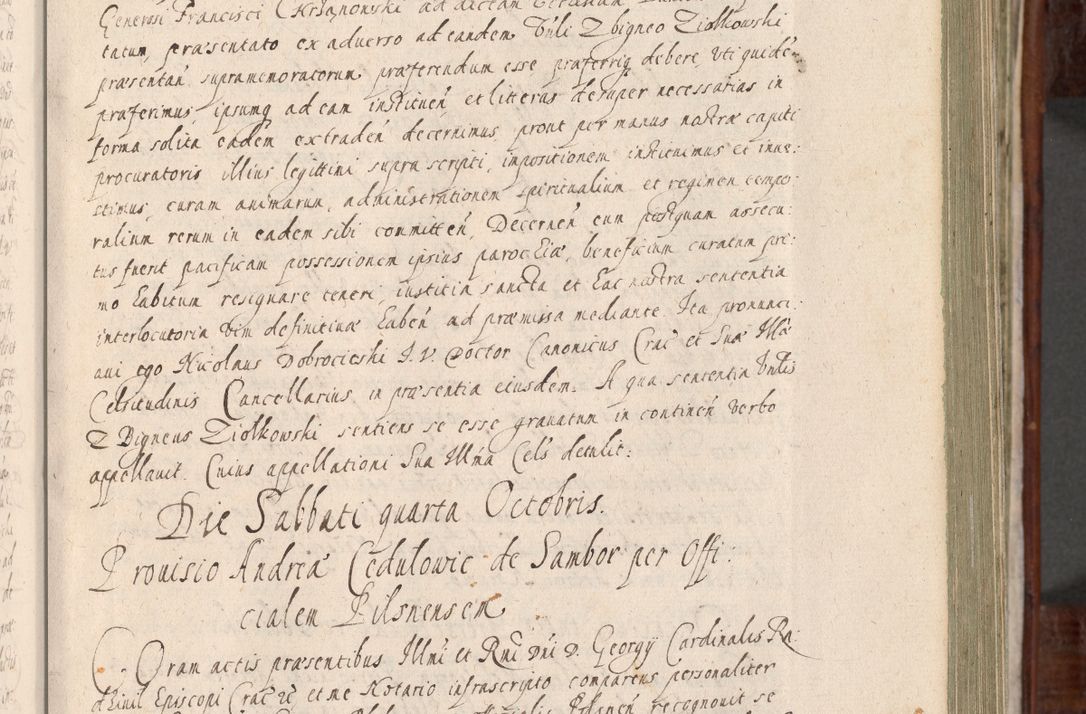 Generosi Francisci Chrzanowski ad dictam Ecclesiam
tacum, præsentato ex adverso ad eandem Vnli Zbigneo Ziołkowski
præsentan̄ supramemoratorum præferendum esse præferriq debere, vti quidē
præferimus, ipsumq ad eam instituen̄ et litteras desuper necessarias in
forma solita eadem extraden̄ decernimus, prout per manus nostræ capiti
procuratoris illius legittimi supra scripti, inpositionem instituimus et inue:
stimus, curam animarum, administrationem spiritualium et regimen tempo:
ralium rerum in eadem sibi committen̄, Decernen̄ eum postquam assecu:
tus fuerit pacificam possessionem ipsius parochiæ, beneficium curatum pri:
mo habitum resignare teneri, iustitia sancta et hac nostra sententia
interlocutoria vim definitiuæ haben̄ ad præmissa mediante. Ita pronunci:
aui ego Nicolaus Dobrocieski I. V. Doctor Canonicus Crac̄ et Suæ Illæ
Celsitudinis Cancellarius in præsentia eiusdem. A qua sententia Vnlis
Zbigneus Ziołkowski sentiens se esse grauatum in continen̄ verbo
appellauit. Cuius appellationi Sua Illma Cels detulit:
Die Sabbati quarta Octobris.
Prouisio Andreæ Cedulowic de Sambor per Offi:
cialem Pilsnensem
Coram actis præsentibus Illmi et Rmi Dni D. Georgÿ Cardinalis Ra:
dziuil Episcopi Crac &c et me Notario infrascripto comparens personaliter
recognouit se